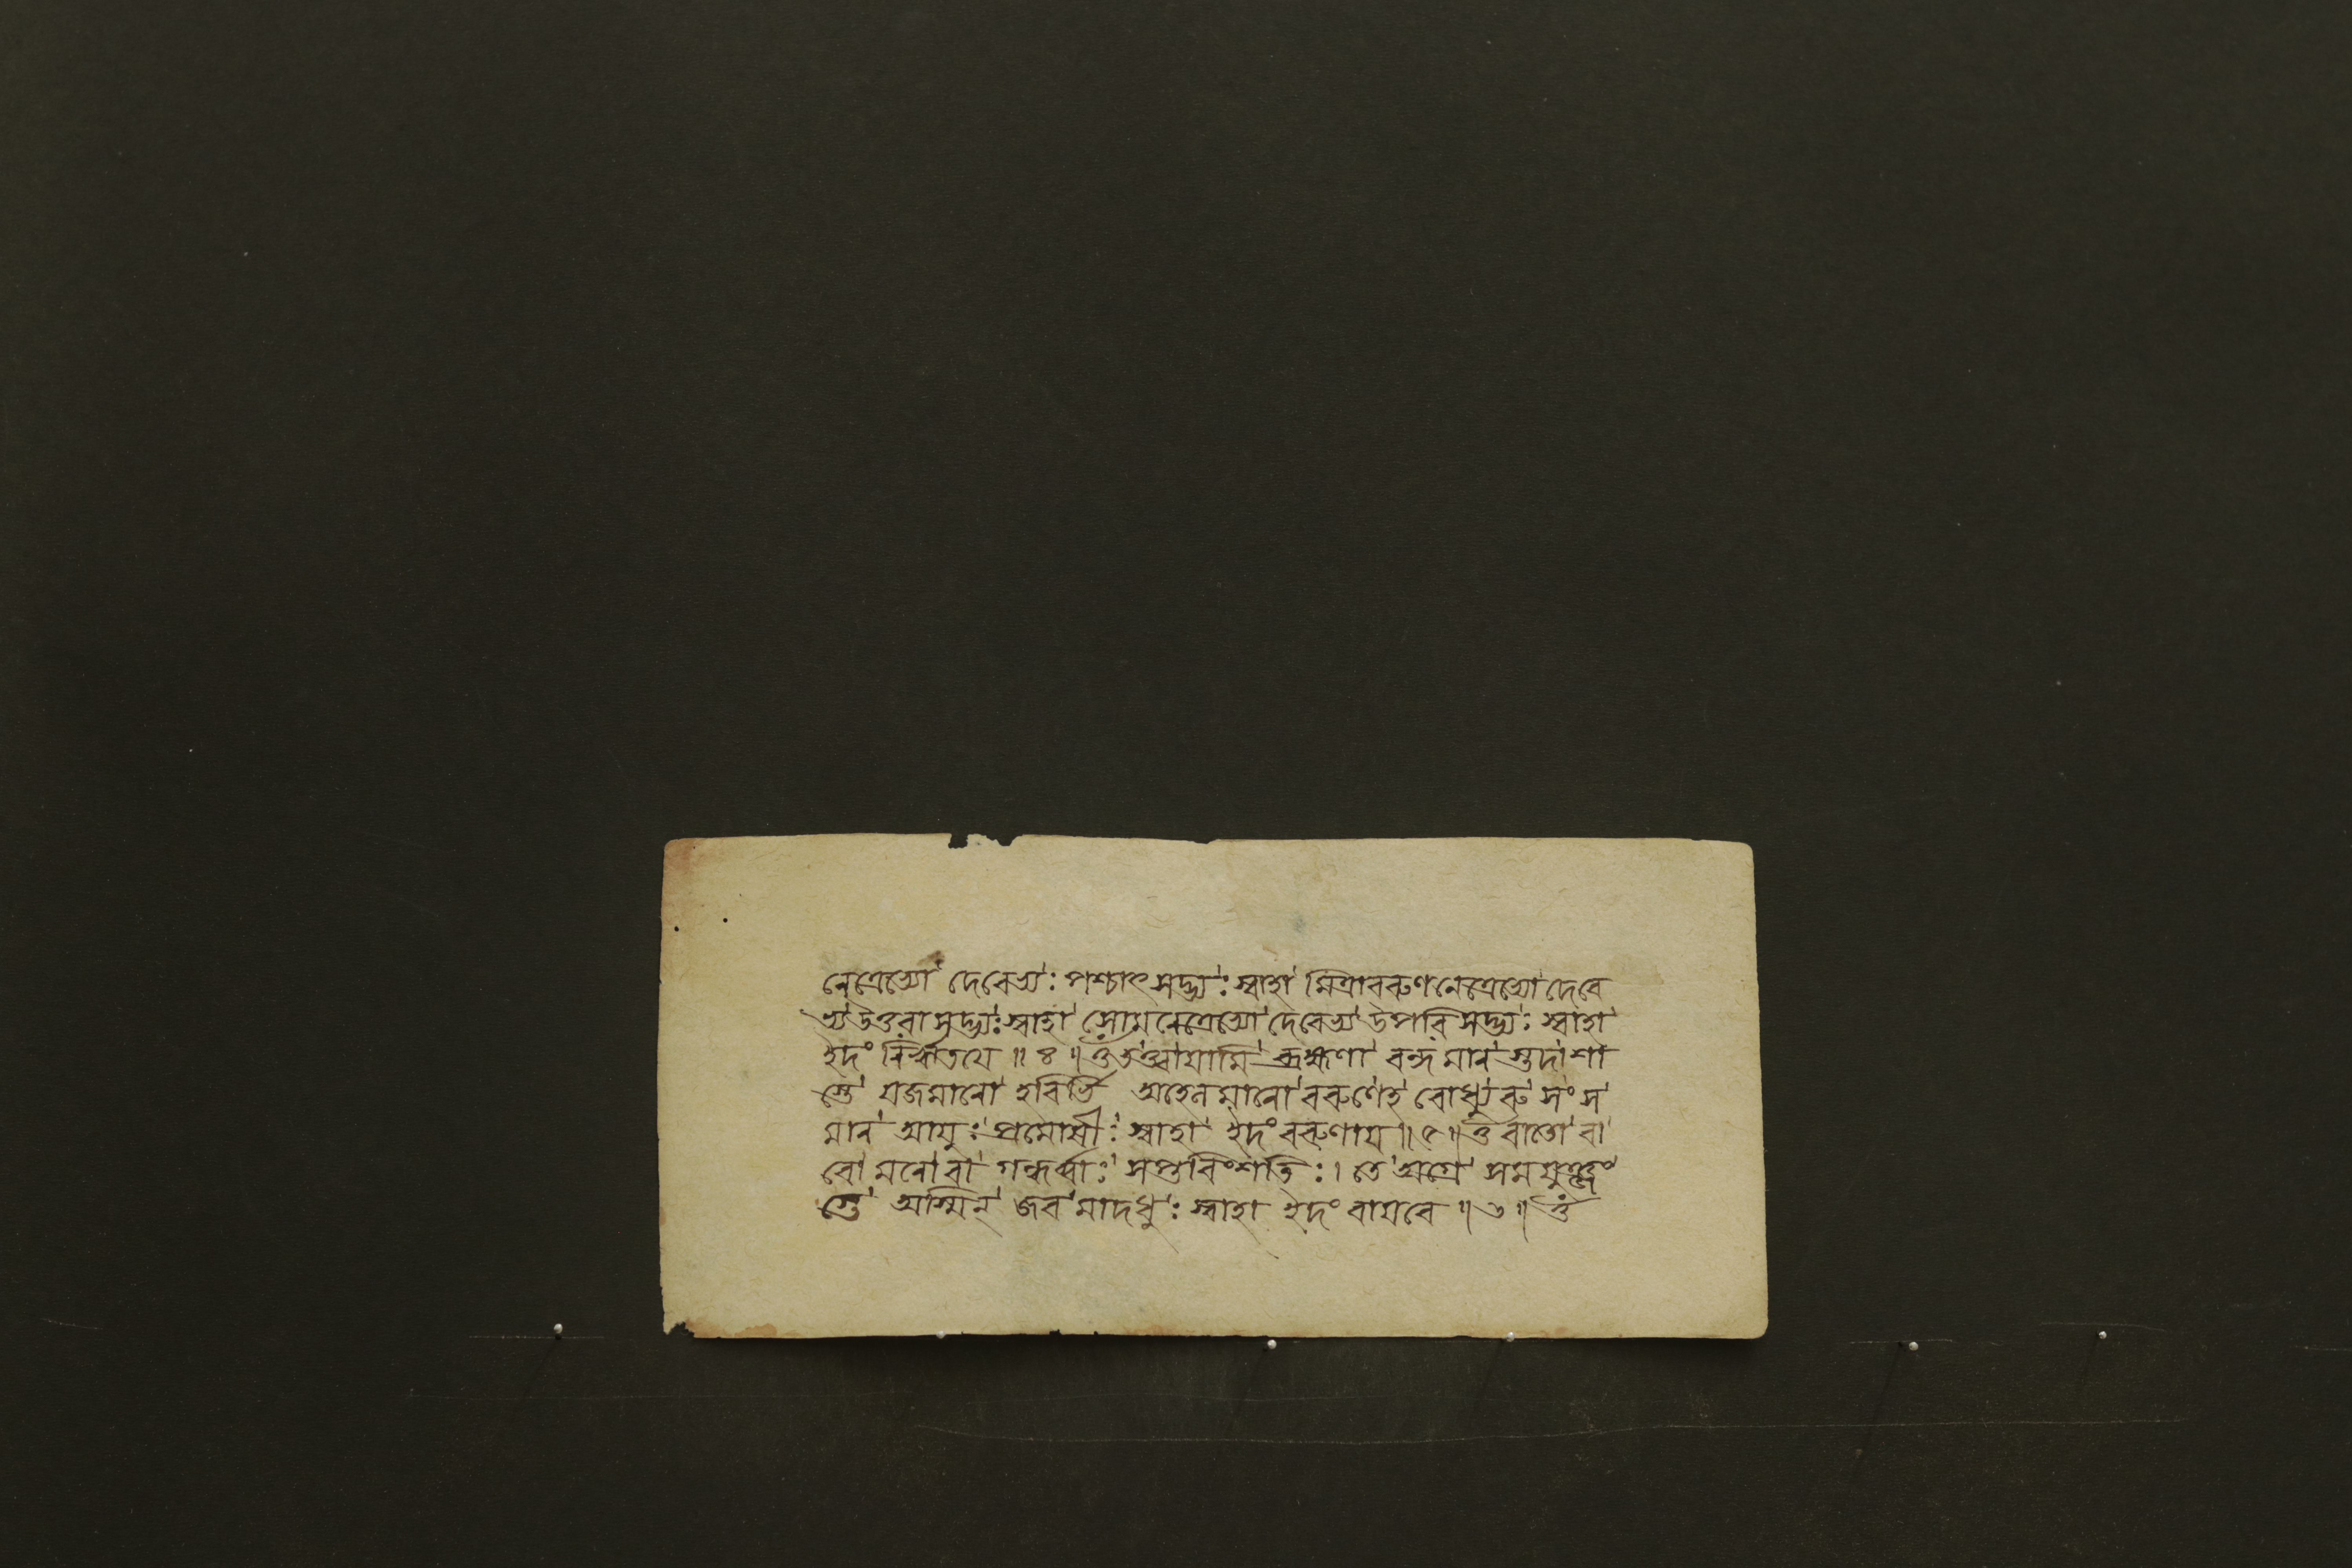 নেত্রেভ্যো দেবেভ্যঃ পশ্চাৎসদ্ভ্যঃ স্বাহা মিত্রাবরুণনেত্রেভ্যো দেবে
ভ্য উত্তরাসদ্ভ্যঃ স্বাহা সোমনেত্রেভ্যো দেবেভ্য উপরিসদ্ভ্যঃ স্বাহা
ইদং নির্ঋতয়ে ॥ ৪ ॥ ওঁ তত্ত্বা যামি ব্রহ্মণা বন্দমান স্তদা শা
স্তে যজমানো হবির্ভি অহেনমানো বরুণেহ বোধ্যুরু সং স
মান আয়ুঃ প্রমোষীঃ স্বাহা ইদং বরুণায় ॥ ৫ ॥ ওঁ বাতো বা
বো মনো বা গন্ধর্ব্বাঃ সপ্তবিংশতিঃ । তে অগ্রে সমযুঞ্জং
স্তে অস্মিন্ জব মাদধুঃ স্বাহা ইদং বায়বে ॥ ৬ ॥ ওঁ